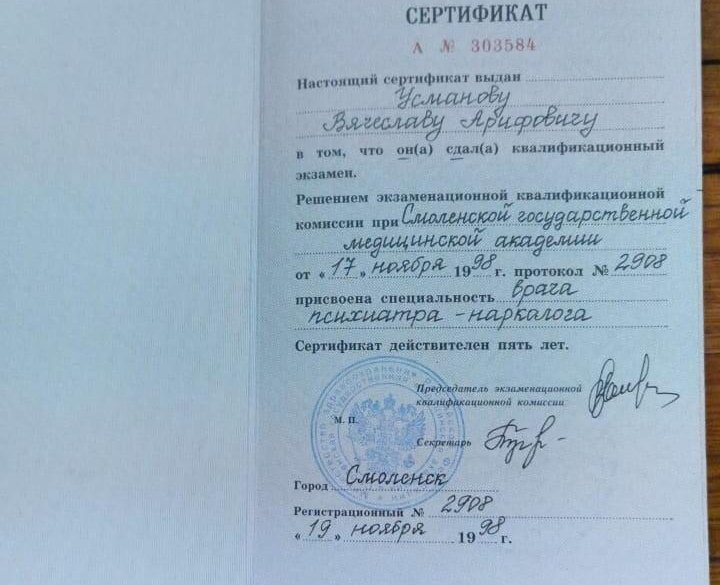 СЕРТИФИКАТ
А № 303584
Настоящий сертификат выдан
Усманову
Вячеславу Арифовичу
в том, что он(а) сдал(а) квалификационный
экзамен.
Решением экзаменационной квалификационной
комиссии при Смоленской государственной
медицинской академии
от « 17 » ноября 1998 г. протокол № 2908
присвоена специальность врача
психиатра - наркалога
Сертификат действителен пять лет.
Председатель экзаменационной
квалификационной комиссии
М. П.
Секретарь
Город Смоленск
Регистрационный № 2908
« 19 » ноября 1998 г.